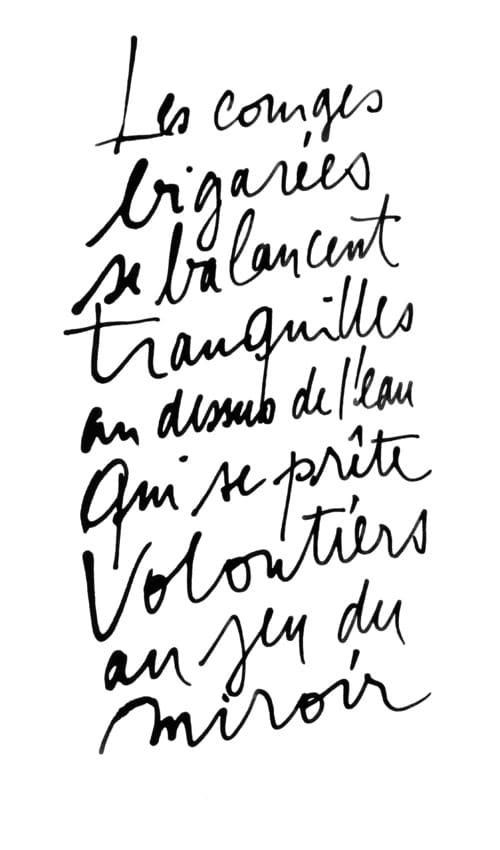 Les courges
bigarées
se balancent
tranquilles
au dessus de l'eau
qui se prête
Volontiers
au jeu du
miroir